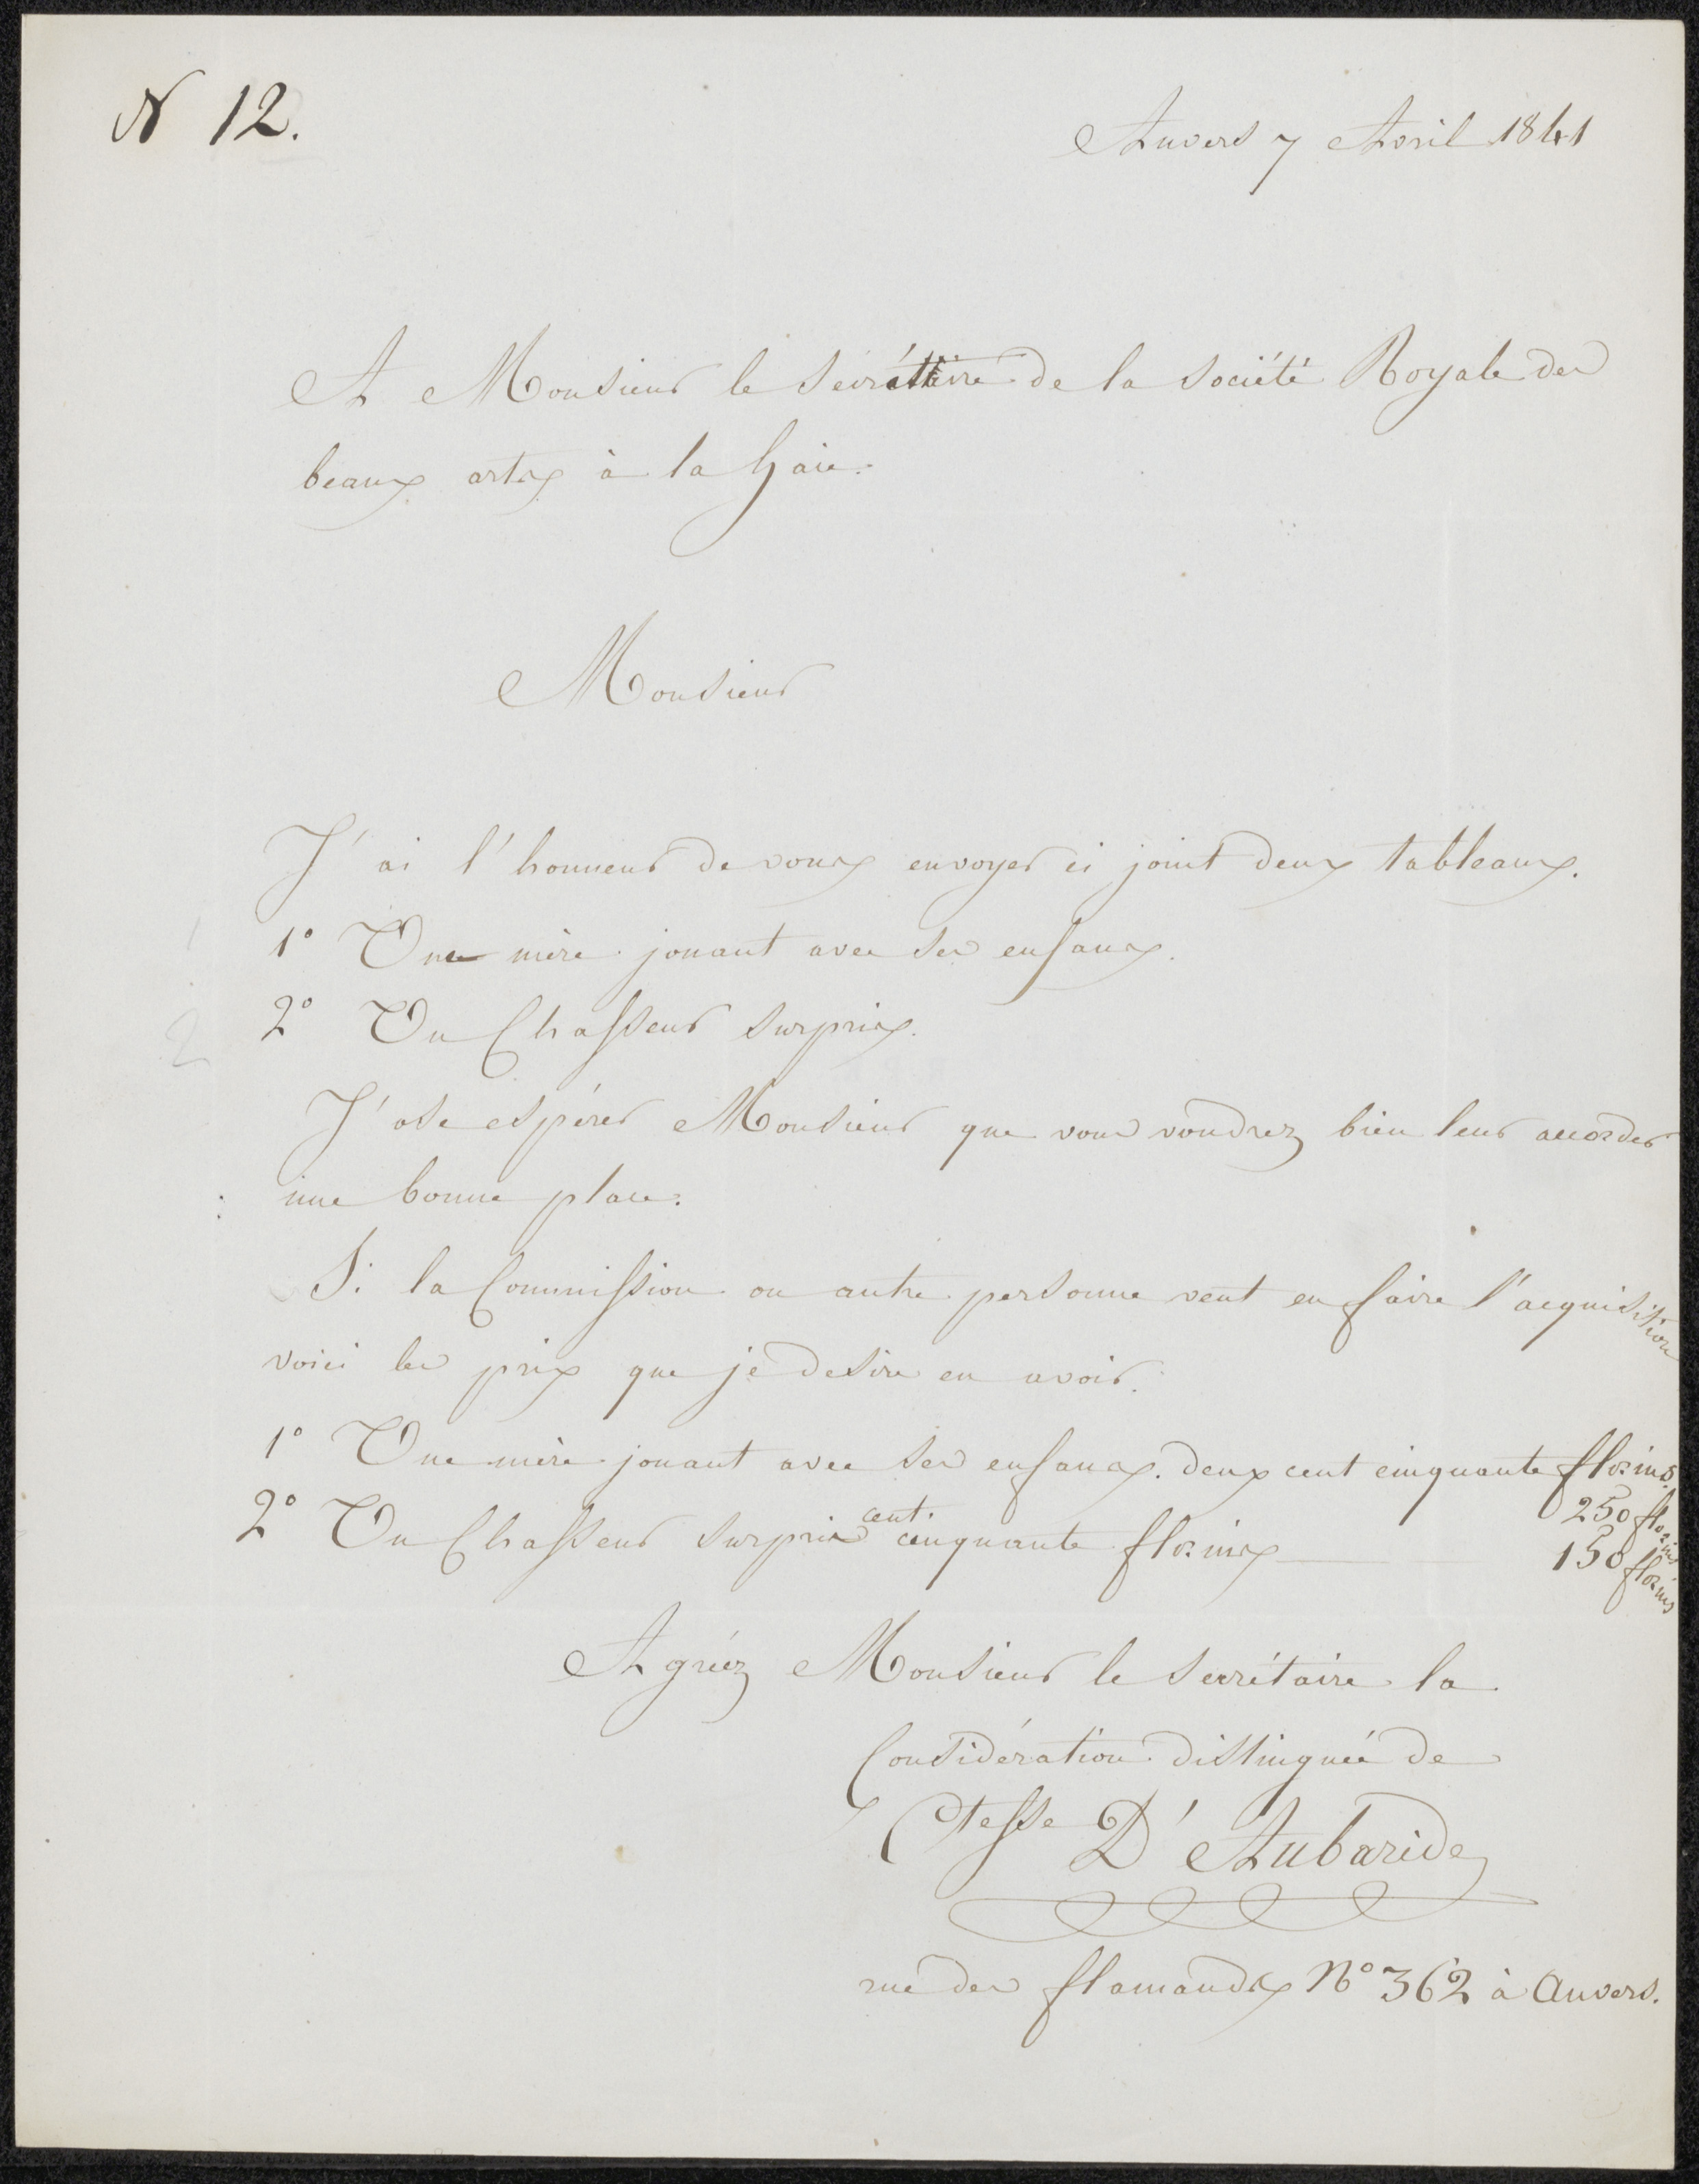 N 12.
Anvers 7 Avril 1841
A Monsieur le Secrétaire de la Société Royale des
beaux arts à la haie.
Monsieur
J'ai l'honneur de vous envoyer ci joint deux tableaux.
1° Une mère jouant avec ses enfans.
2° Un Chasseur surpris.
J'ose espérer Monsieur que vous voudrez bien leur accorder
une bonne place.
Si la Commission ou autre personne veut en faire l'acquisition
voici les prix que je desire en avoir.
1° Une mère jouant avec ses enfans. deux cent cinquante florins.
250 florins
2° Un Chasseur surpris cent cinquante florins
150 florins
Agréez Monsieur le Secrétaire la
Considération distinguée de
Ctesse D'Aubarede
rue des flamands N° 362 à Anvers.
1
2